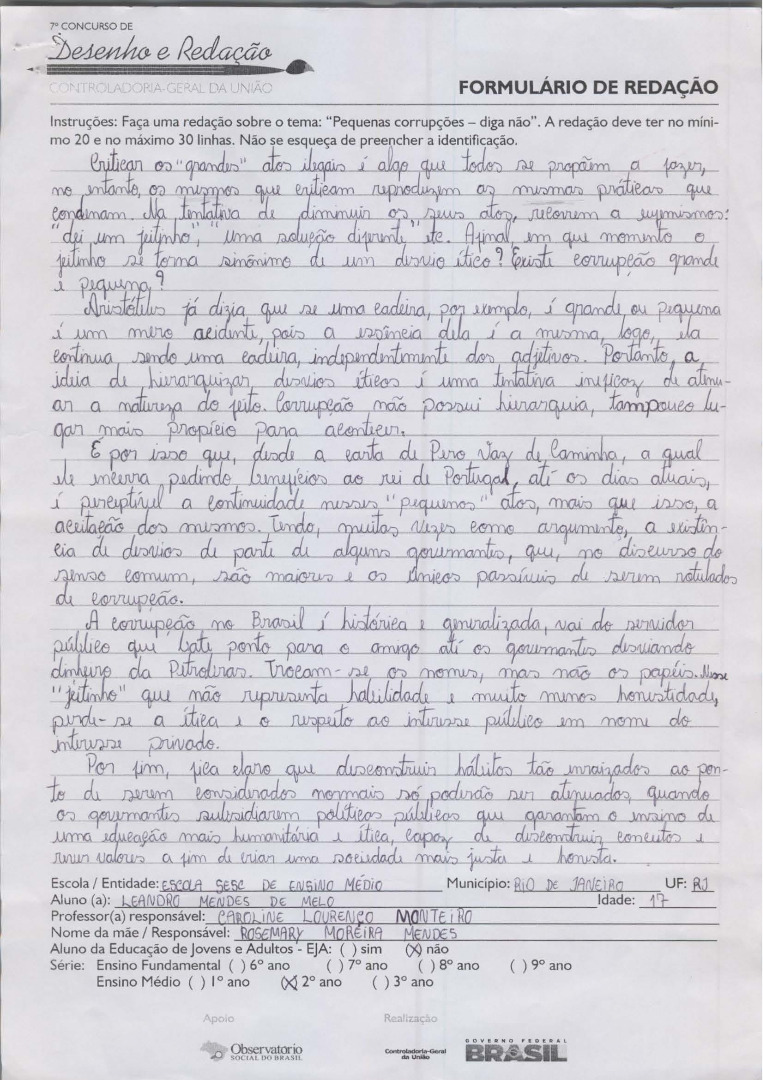 7º CONCURSO DE
Desenho e Redação
CONTROLADORIA-GERAL DA UNIÃO
FORMULÁRIO DE REDAÇÃO
Instruções: Faça uma redação sobre o tema: “Pequenas corrupções – diga não”. A redação deve ter no míni-
mo 20 e no máximo 30 linhas. Não se esqueça de preencher a identificação.
Criticar os "grandes" atos ilegais é algo que todos se propõem a fazer,
no entanto, os mesmos que criticam reproduzem as mesmas práticas que
condenam. Na tentativa de diminuir os seus atos, recorrem a eufemismos:
"dei um jeitinho", "uma solução diferente" etc. Afinal em que momento o
jeitinho se torna sinônimo de um desvio ético? Existe corrupção grande
e pequena?
Aristóteles já dizia que se uma cadeira, por exemplo, é grande ou pequena
é um mero acidente, pois a essência dela é a mesma, logo, ela
continua sendo uma cadeira, independentemente dos adjetivos. Portanto, a
ideia de hierarquizar desvios éticos é uma tentativa ineficaz de atenu-
ar a natureza do feito. Corrupção não possui hierarquia, tampouco lu-
gar mais propício para acontecer.
É por isso que, desde a carta de Pero Vaz de Caminha, a qual
ele encerra pedindo benefícios ao rei de Portugal, até os dias atuais,
é perceptível a continuidade nesses "pequenos" atos, mais que isso, a
aceitação dos mesmos. Tendo, muitas vezes como argumento, a existên-
cia de desvios de parte de alguns governantes, que, no discurso do
senso comum, são maiores e os únicos passíveis de serem rotulados
de corrupção.
A corrupção no Brasil é histórica e generalizada, vai do servidor
público que bate ponto para o amigo até os governantes desviando
dinheiro da Petrobras. Trocam-se os nomes, mas não os papéis. Nesse
"jeitinho" que não representa habilidade e muito menos honestidade,
perde-se a ética e o respeito ao interesse público em nome do
interesse privado.
Por fim, fica claro que desconstruir hábitos tão enraizados ao pon-
to de serem considerados normais só poderão ser atenuados quando
os governantes subsidiarem políticas públicas que garantam o ensino de
uma educação mais humanitária e ética, capaz de desconstruir conceitos e
rever valores a fim de criar uma sociedade mais justa e honesta.
Escola / Entidade: ESCOLA SESC DE ENSINO MÉDIO Município: RIO DE JANEIRO UF: RJ
Aluno (a): LEANDRO MENDES DE MELO Idade: 17
Professor(a) responsável: CAROLINE LOURENÇO MONTEIRO
Nome da mãe / Responsável: ROSEMARY MOREIRA MENDES
Aluno da Educação de Jovens e Adultos - EJA: ( ) sim (X) não
Série: Ensino Fundamental ( ) 6º ano ( ) 7º ano ( ) 8º ano ( ) 9º ano
Ensino Médio ( ) 1º ano (X) 2º ano ( ) 3º ano
Apoio Realização
Observatório
SOCIAL DO BRASIL
Controladoria-Geral
da União
GOVERNO FEDERAL
BRASIL